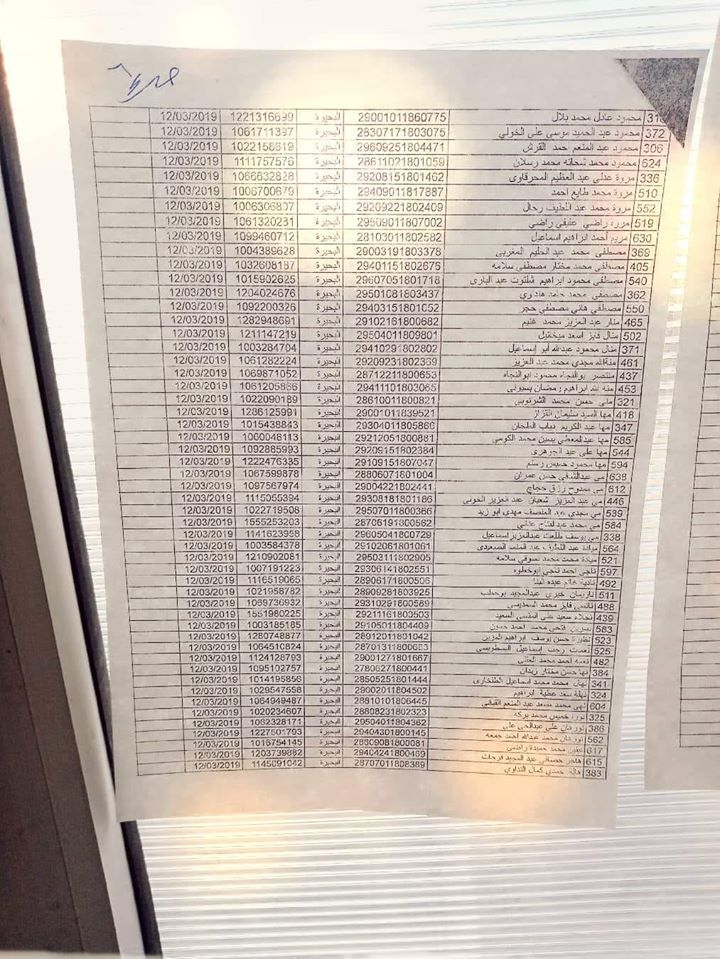 محمود عادل محمد بلال 29001011860775 البحيرة 1221316699 12/03/2019
372 محمود عبد الحميد موسى على الخولي 28307171803075 البحيرة 1061711397 12/03/2019
306 محمود عبد المنعم حمد القرش 29609251804471 البحيرة 1022158619 12/03/2019
624 محمود محمد شحاته محمد رسلان 28611021801059 البحيرة 1111757576 12/03/2019
336 مروة عدلى عبد العظيم المحرقاوى 29208151801462 البحيرة 1066632828 12/03/2019
510 مروة محمد طايع احمد 29409011817887 البحيرة 1006700679 12/03/2019
552 مروة محمد عبد اللطيف رحال 29209221802409 البحيرة 1006306807 12/03/2019
519 مروه راضي عفيفي راضي 29509011807002 البحيرة 1061320231 12/03/2019
630 مريم احمد ابراهيم اسماعيل 28103011802582 البحيرة 1099460712 12/03/2019
369 مصطفى محمد عبد الحليم المغربى 29003191803378 البحيرة 1004389628 12/03/2019
405 مصطفى محمد مختار مصطفى سلامه 29401151802675 البحيرة 1032608187 12/03/2019
540 مصطفى محمود ابراهيم شلتوت عبد البارى 29607051801718 البحيرة 1015902625 12/03/2019
362 مصطفى محمد حامد هنداوى 29501081803437 البحيرة 1204024676 12/03/2019
550 مصطفى هانى مصطفى حجر 29403151801052 البحيرة 1092200326 12/03/2019
465 منار عبد العزيز محمد غنيم 29102161800682 البحيرة 1282948691 12/03/2019
502 منال فايز اسعد ميخائيل 29504011809801 البحيرة 1211147219 12/03/2019
371 منال محمود عبدالله أبو إسماعيل 29410291802802 البحيرة 1003284704 12/03/2019
461 منةالله مجدى محمد عبد العزيز 29209231802369 البحيرة 1061282224 12/03/2019
437 منتصر ابوالنجاه محمود ابوالنجاه 28712211800653 البحيرة 1069871052 12/03/2019
453 منه الله ابراهيم رمضان بسيونى 29411101803065 البحيرة 1061205886 12/03/2019
321 منى حسن محمد الشرنوبى 28610011800821 البحيرة 1022090189 12/03/2019
418 مها السيد سليمان القزاز 29001011839521 البحيرة 1286125991 12/03/2019
347 مها عبد الكريم دياب الطحان 29304011805866 البحيرة 1015438843 12/03/2019
585 مها عبدالمعطي يسين محمد الكومي 29212051800881 البحيرة 1060048113 12/03/2019
544 مها على عبد الجوهرى 29209151802384 البحيرة 1092885993 12/03/2019
594 مها محمود خميس رستم 29109151807047 البحيرة 1222476335 12/03/2019
638 مى عبدالشافى حسن عمران 28806071801004 البحيرة 1067599878 12/03/2019
612 مى ممدوح رزق حجاج 29004221802441 البحيرة 1097567974 12/03/2019
446 مى عبد العزيز شعبان عبد العزيز الخولى 29308181801186 البحيرة 1115055394 12/03/2019
539 مى مجدى عبد المنصف مهدى ابو زيد 29507011800366 البحيرة 1022719508 12/03/2019
584 مى محمد عبد الفتاح 28706191800562 البحيرة 1555253203 12/03/2019
338 مى يوسف طلعت عبدالعزيز اسماعيل 29605041800729 البحيرة 1141623958 12/03/2019
564 ميادة عبد اللطيف عبد الصعيدى 29102061801061 البحيرة 1003584378 12/03/2019
521 ميادة محمد محمد سلامه 29503111802905 البحيرة 1210902081 12/03/2019
597 ناجى احمد ناجى 29306141802551 البحيرة 1007191223 12/03/2019
492 نادية 28906171800506 البحيرة 1116519065 12/03/2019
511 ناريمان خيرى عبدالمجيد 28909281803925 البحيرة 1021958782 12/03/2019
488 فايز محمد 29310291800589 البحيرة 1069736932 12/03/2019
439 نجلاء سعيد على السعيد 29211161800503 البحيرة 1551980225 12/03/2019
583 نسرين فتحى محمد احمد حسن 29105011804409 البحيرة 1003185185 12/03/2019
523 حسن يوسف ابراهيم 28912011801042 البحيرة 1280748877 12/03/2019
525 نعمت رجب إسماعيل 28701311800683 البحيرة 1064510824 12/03/2019
482 نعمه احمد محمد 29001271801667 البحيرة 1124128793 12/03/2019
384 نها حسن مختار زيدان 27806271800441 البحيرة 1095102757 12/03/2019
341 نهال محمد محمد اسماعيل 28505251801444 البحيرة 1014195856 12/03/2019
324 نهلة سعد عطية ابراهيم 29002011804502 البحيرة 1029547558 12/03/2019
604 نهى محمد سعد عبد المنعم 28810101806445 البحيرة 1064949487 12/03/2019
325 نورا خميس محمد بركه 28808231802323 البحيرة 1020234607 12/03/2019
386 نورهان على عبدالحى على 29504011804362 البحيرة 1062328171 12/03/2019
562 نورهان محمد عبدالله احمد جمعه 29404301800145 البحيرة 1227501793 12/03/2019
617 نيفين محمد حميدة راضى 28509081800081 البحيرة 1016754145 12/03/2019
615 هاجر عبد المجيد فرحات 29404241800469 البحيرة 1203739882 12/03/2019
383 هالة حمدى كمال 28707011808389 البحيرة 1145091042 12/03/2019